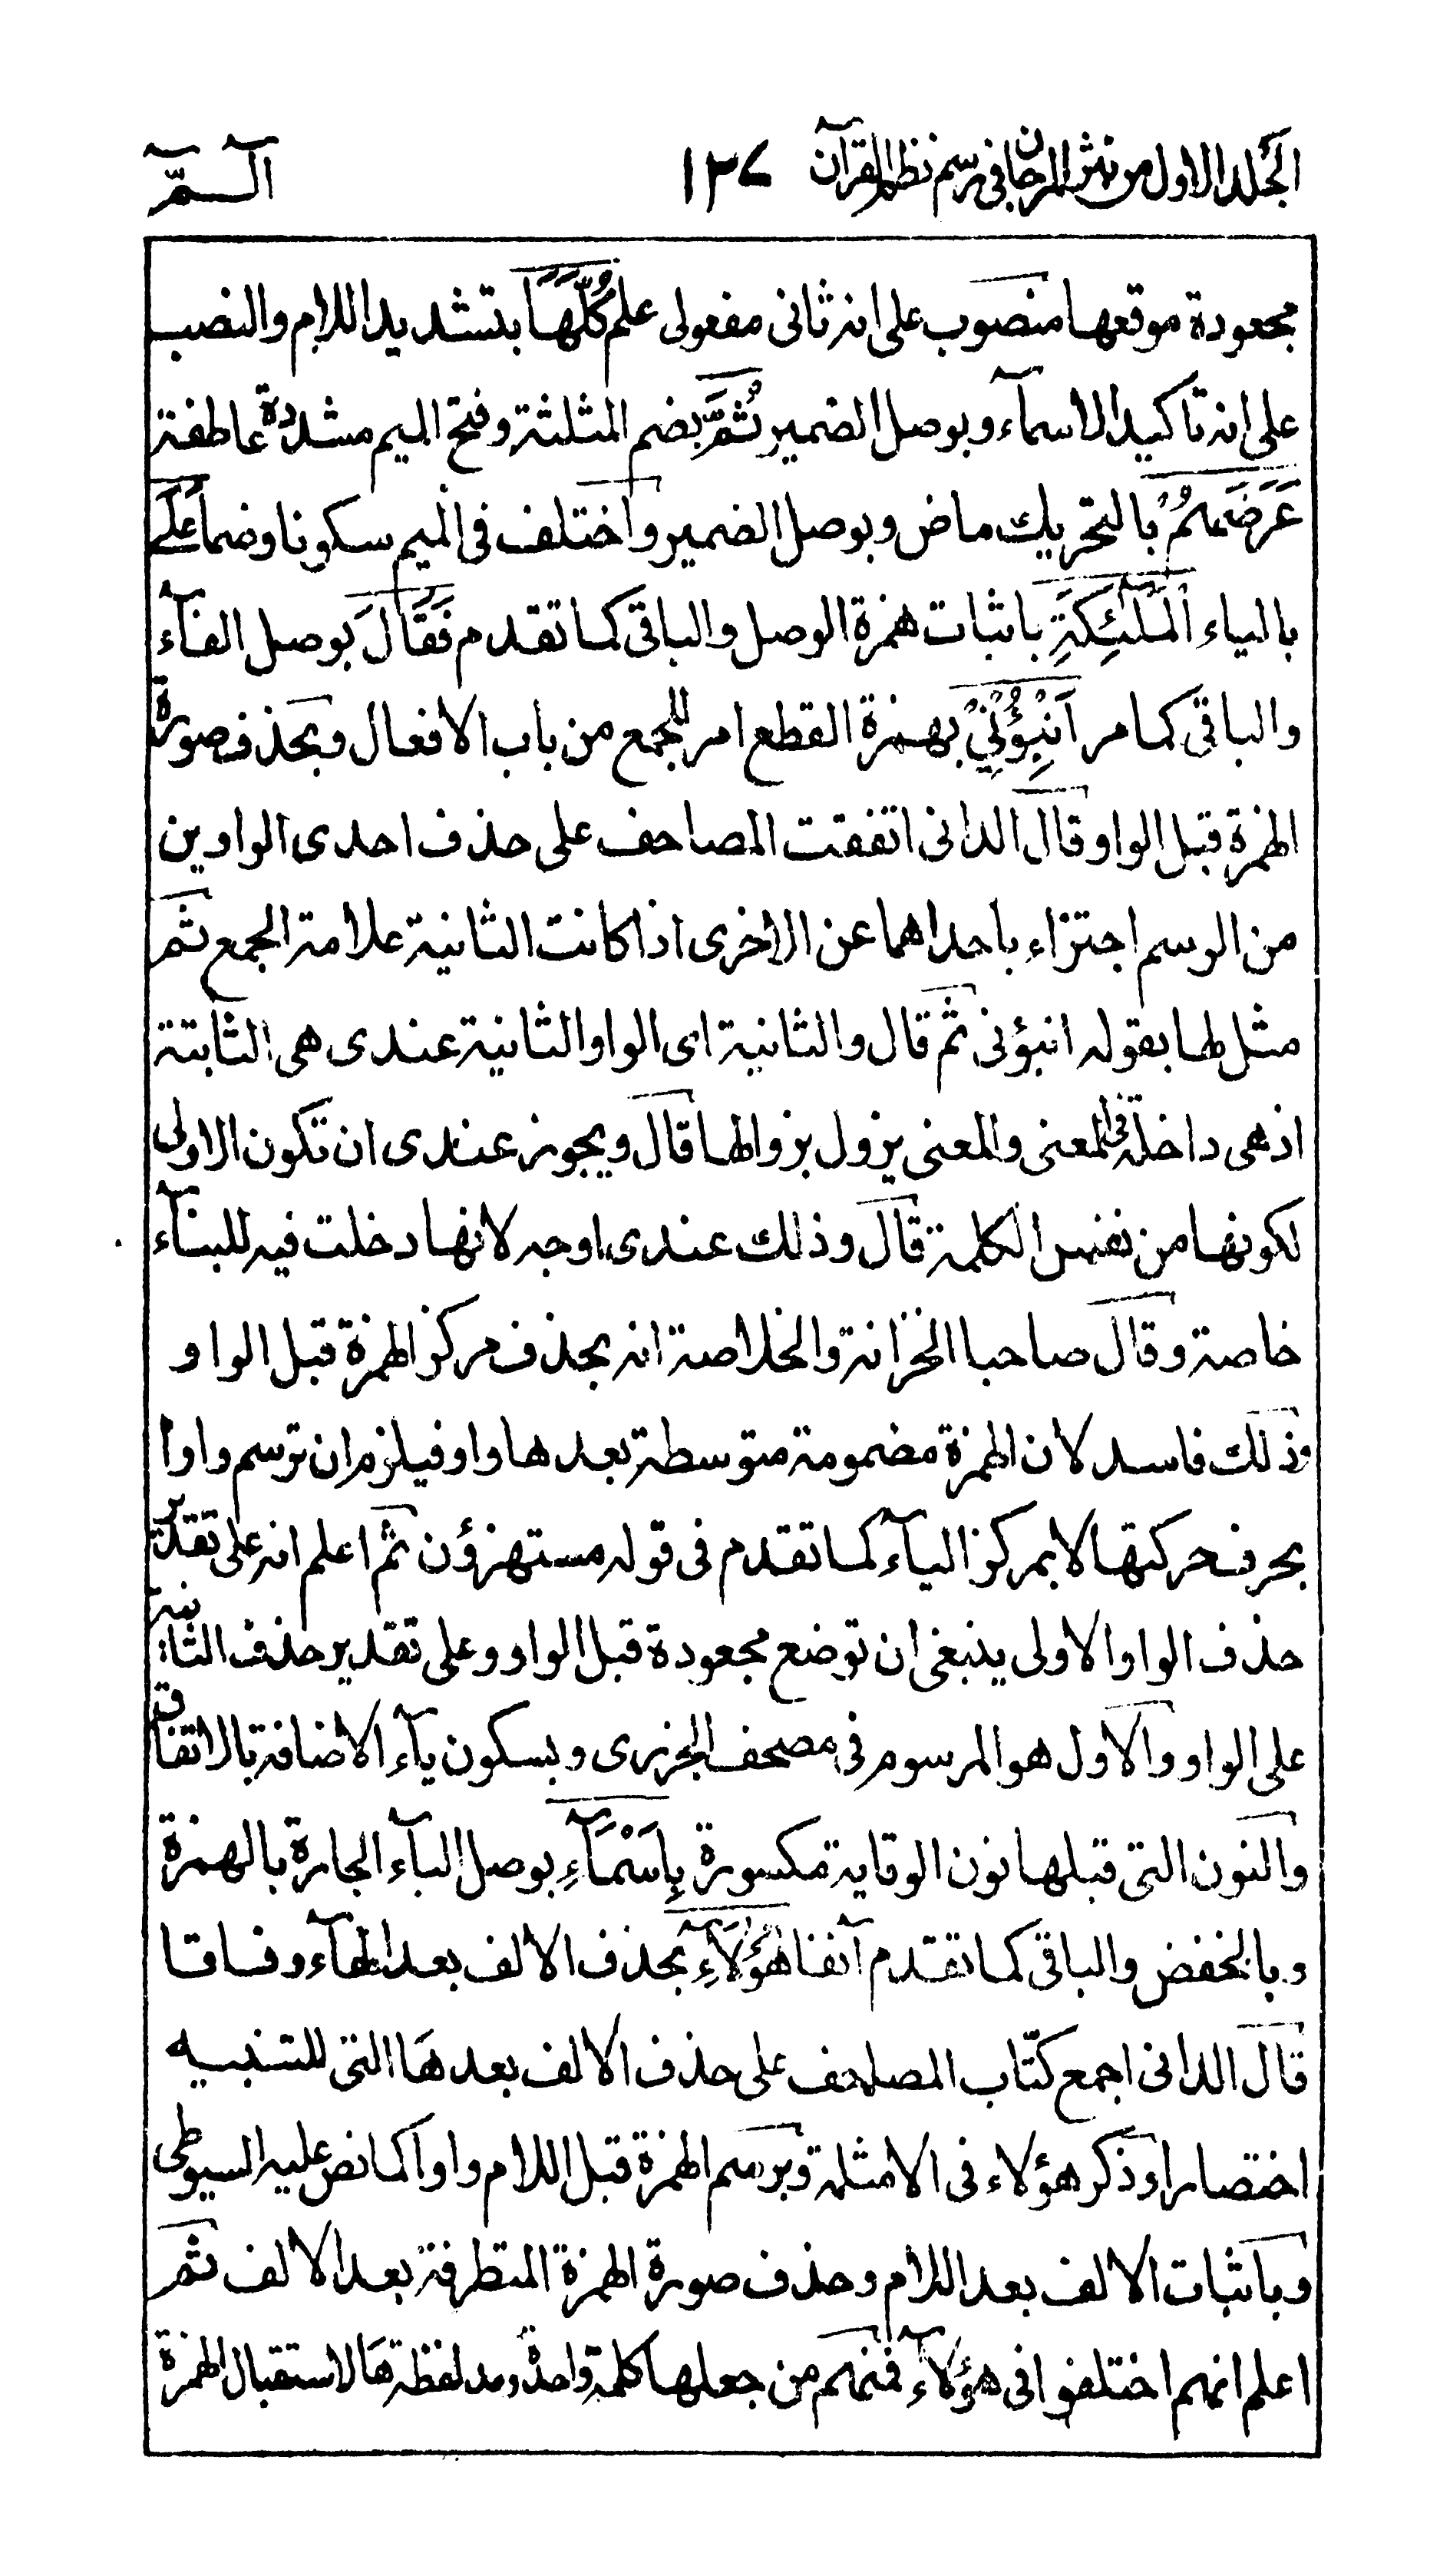 المجلد الاول من نثر المرجان فى رسم نظم القرآن ١٣٧ الٓــمّٓ
مجعودة موقعها منصوب على انه ثانى مفعولى علم كُلَّهَا بتشديد اللام والنصب
على انه تاكيد الاسمآء وبوصل الضمير ثُمَّ بضم المثلثة وفتح الميم مشددة عاطفة
عَرَضَهُمْ بالتحريك ماض وبوصل الضمير واختلف فى الميم سكونا وضما عَلَى
بالياء الْمَلٰٓئِكَةِ باثبات همزة الوصل والباقى كما تقدم فَقَالَ بوصل الفآء
والباقى كما مر اَنْبِؤُنِيْ بهمزة القطع امر للجمع من باب الافعال وبحذف صورة
الهمزة قبل الواو قال الدانى اتفقت المصاحف على حذف احدى الواوين
من الرسم اجتزاء باحداهما عن الاخرى اذا كانت الثانية علامة الجمع ثم
مثل لها بقوله انبؤنى ثم قال والثانية اى الواو الثانية عندى هى الثابتة
اذ هى داخلة فى المعنى والمعنى يزول بزوالها قال ويجوز عندى ان تكون الاولى
لكونها من نفس الكلمة قال وذلك عندى اوجه لانها دخلت فيه للبنآء
خاصة وقال صاحبا الخزانة والخلاصة انه بحذف مركز الهمزة قبل الواو و
وذلك فاسد لان الهمزة مضمومة متوسطة بعدها واو فيلزم ان ترسم واوا
بحرف حركتها لا بمركز اليآء كما تقدم فى قوله مستهزؤن ثم اعلم انه على تقدير
حذف الواو الاولى ينبغى ان توضع مجعودة قبل الواو وعلى تقدير حذف الثانية
على الواو والاول هو المرسوم فى مصحف الجزرى وبسكون يآء الاضافة بالاتفاق
والنون التى قبلها نون الوقاية مكسورة بِاَسْمَآءِ بوصل البآء الجارة بالهمزة
وبالخفض والباقى كما تقدم آنفا هٰٓؤُلَآءِ بحذف الالف بعد الهآء وفاقا
قال الدانى اجمع كتّاب المصاحف على حذف الالف بعد هَا التى للتنبيه
اختصارا وذكر هؤلاء فى الامثلة وبرسم الهمزة قبل اللام واوا كما نص عليه السيوطى
وباثبات الالف بعد اللام وحذف صورة الهمزة المتطرفة بعد الالف ثم
اعلم انهم اختلفوا فى هؤلآء فمنهم من جعلها كلمة واحدة ومد لفظة هَا لاستقبال الهمزة